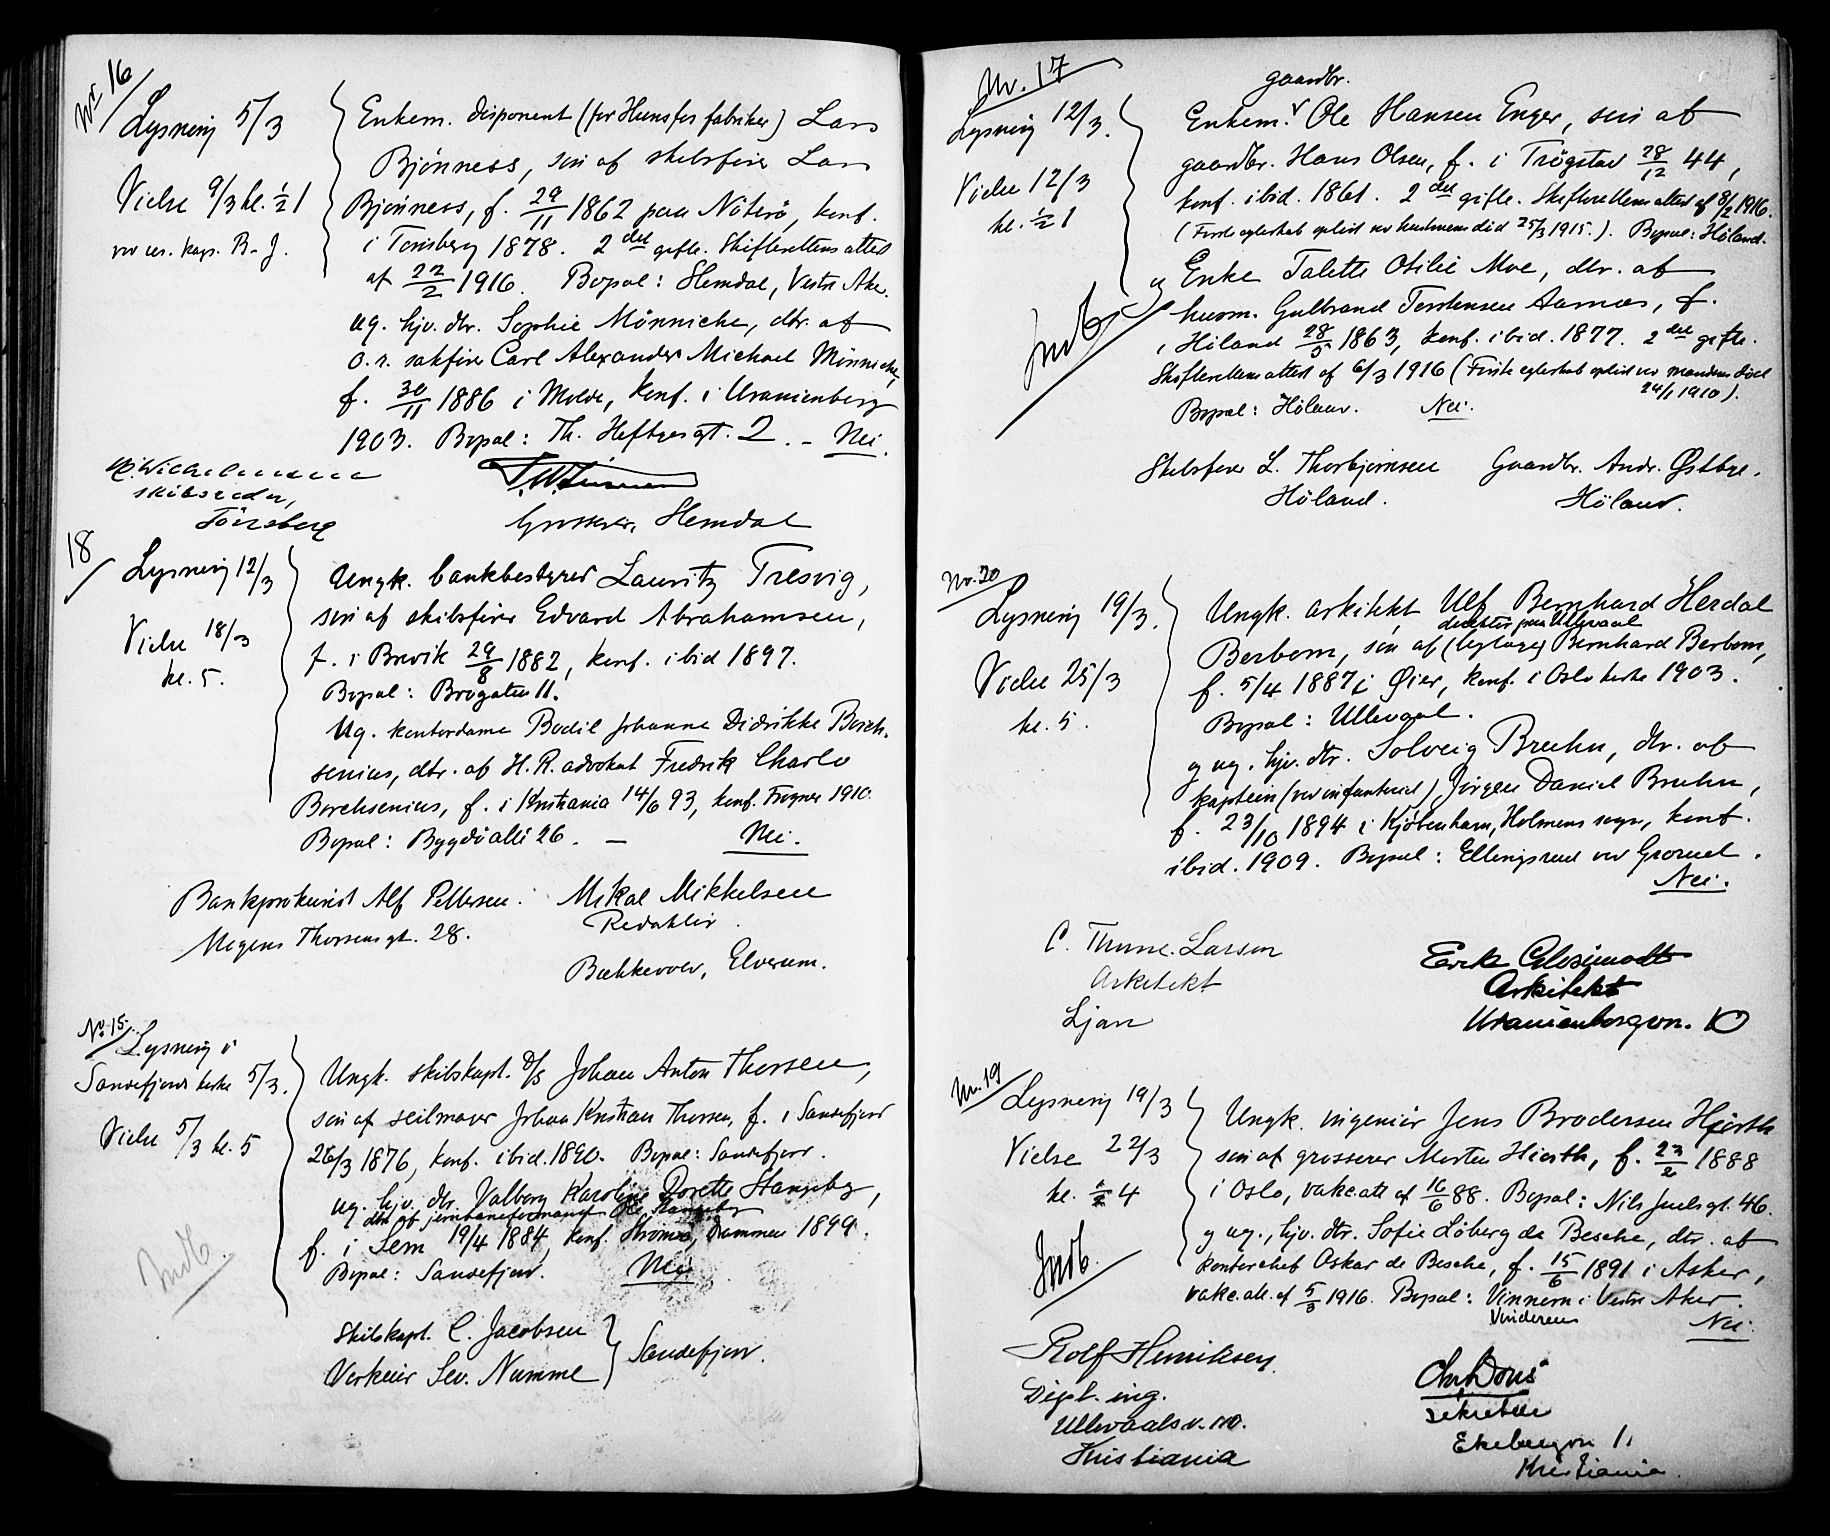 Nr 16
Lysning 5/3
Vielse 9/3 kl. ½ 1
ved res. kap. B-J.
Enkem. disponent (for Hunsfos fabriker) Lars
Bjønness, søn af skibsfører Lars
Bjønness, f. 29/11 1862 paa Nøterø, konf.
i Tønsberg 1878. 2 den gifte. Skifterettens attest
af 22/2 1916. Bopæl: Slemdal, Vestre Aker.
ug. hjv. dtr. Sophie Mønniche, dtr. af
o.r. sakfører Carl Alexander Michael Mønniche,
f. 30/11 1886 i Molde, konf. i Uranienborg
1903. Bopæl: Th. Heftyesgt. 2. – Nei.
Wilhelmsen
skibsreder,
Tönsberg
Grosserer, Slemdal
18
Lysning 12/3
Vielse 18/3
kl. 5.
Ungk. bankbestyrer Lauritz Tresvig,
søn af skibsfører Edvard Abrahamsen,
f. i Brevik 29/8 1882, konf. ibid 1897.
Bopæl: Brogaten 11.
Ug. kontordame Bodil Johanne Didrikke Borch-
senius, dtr. af H.R. advokat Fredrik Charlo
Borchsenius, f. i Kristiania 14/6 93, konf. Frogner 1910.
Bopæl: Bygdø allé 26. – Nei.
Bankprokurist Alf Pettersen.
Mogens Thorsensgt. 28.
Mikal Mikkelsen
Redaktør.
Bækkevold, Elverum.
No. 15.
Lysning i
Sandefjords kirke 5/3.
Vielse 5/3 kl. 5
Indb.
Ungk. skibskapt. D/S Johan Anton Thorsen,
søn af seilmager Johan Kristian Thorsen, f. i Sandefjord
26/3 1876, konf. ibid. 1890. Bopæl: Sandefjord.
ug. hjv. dtr. Valborg Karoline Dorette Stangeby,
dtr. af jernbaneformand Ole Stangeby
f. i Sem 19/4 1884, konf. Strømsø, Drammen 1899.
Bopæl: Sandefjord. Nei
Skibskapt. C. Jacobsen
Verkeier Sev. Numme
Sandefjord.
Nr. 17
Lysning 12/3.
Vielse 12/3
kl. ½ 1
Indb.
gaardbr.
Enkem. Ole Hansen Enger, søn af
gaardbr. Hans Olsen, f. i Trøgstad 28/12 44,
konf. ibid. 1861. 2 den gifte. Skifterettens attest af 8/2 1916.
(Første egteskab opløst ved hustruens død 25/3 1915.). Bopæl: Høland.
og Enke Talette Otilie Moe, dtr. af
husm. Gulbrand Torstensen Aarnæs, f.
i Høland 28/5 1863, konf. ibid. 1877. 2 den gifte.
Skifterettens attest af 6/3 1916 (Første egteskab opløst ved mandens død
24/1 1910).
Bopæl: Høland. Nei.
Skibsfører L. Thorbjørnsen
Høland.
Gaardbr. Andr. Østbye.
Höland.
Nr. 20
Lysning 19/3.
Vielse 25/3
kl. 5.
Ungk. arkitekt Ulf Bernhard Herdal
direktør paa Ullevaal
Berbom, søn af (læge) Bernhard Berbom,
f. 5/4 1887 i Øier, konf. i Oslo kirke 1903.
Bopæl: Ullevaal.
og ug. hjv. dtr. Solveig Bruhn, dtr. af
kaptein (ved infanteriet) Jørgen Daniel Bruhn,
f. 23/10 1894 i Kjøbenhavn, Holmens sogn, konf.
ibid. 1909. Bopæl: Ellingsrud ved Grorud.
Nei.
C. Thune-Larsen
Arkitekt
Ljan
Erik Glosimodt
Arkitekt
Uranienborgvn. 10
Nr. 19
Lysning 19/3
Vielse 22/3
kl. ½ 4
Indb.
Ungk. ingeniør Jens Brodersen Hjorth
søn af grosserer Morten Hjorth, f. 23/2 1888
i Oslo, vakc. att. af 16/6 88. Bopæl: Nils Juelsgt. 46.
og ug., hjv. dtr. Sofie Löberg de Besche, dtr. af
kontorchef Oskar de Besche, f. 15/6 1891 i Asker,
vakc. att. af 5/3 1916. Bopæl: Vinnern i Vestre Aker.
Vinderen
Nei.
Rolf Henriksen
Dipl. ing.
Ullevaalsv. 110.
Kristiania
Chr. Dons
sekretær
Ekebergvn 1.
Kristiania.